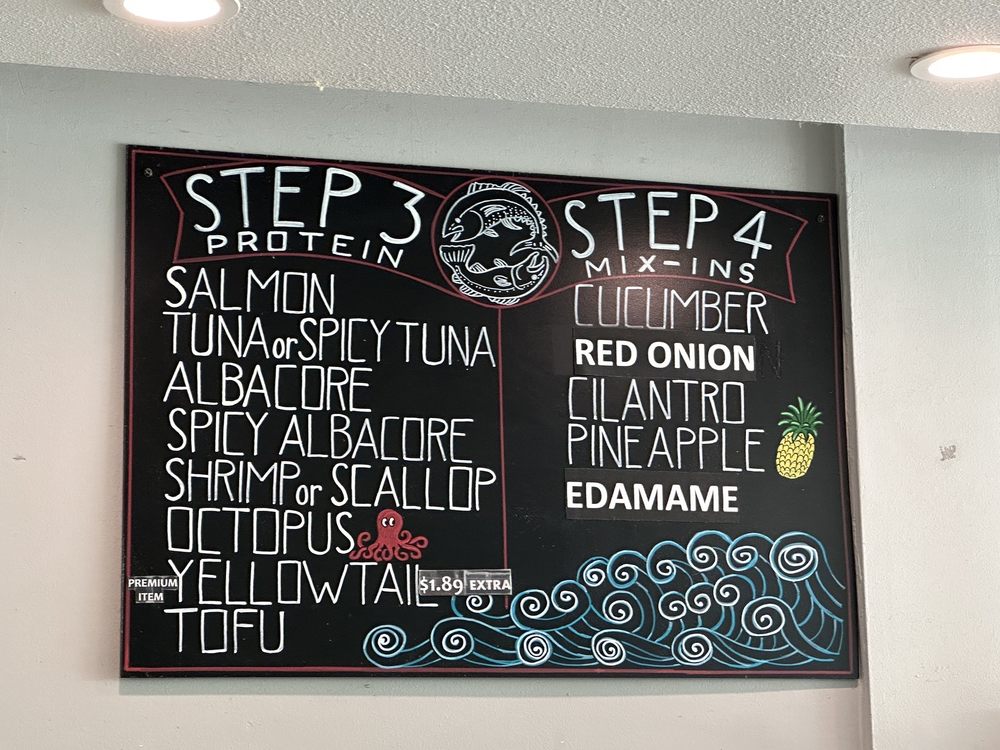 STEP 3
PROTEIN
SALMON
TUNA or SPICY TUNA
ALBACORE
SPICY ALBACORE
SHRIMP or SCALLOP
OCTOPUS
PREMIUM
ITEM
YELLOWTAIL $1.89 EXTRA
TOFU
STEP 4
MIX-INS
CUCUMBER
RED ONION
CILANTRO
PINEAPPLE
EDAMAME